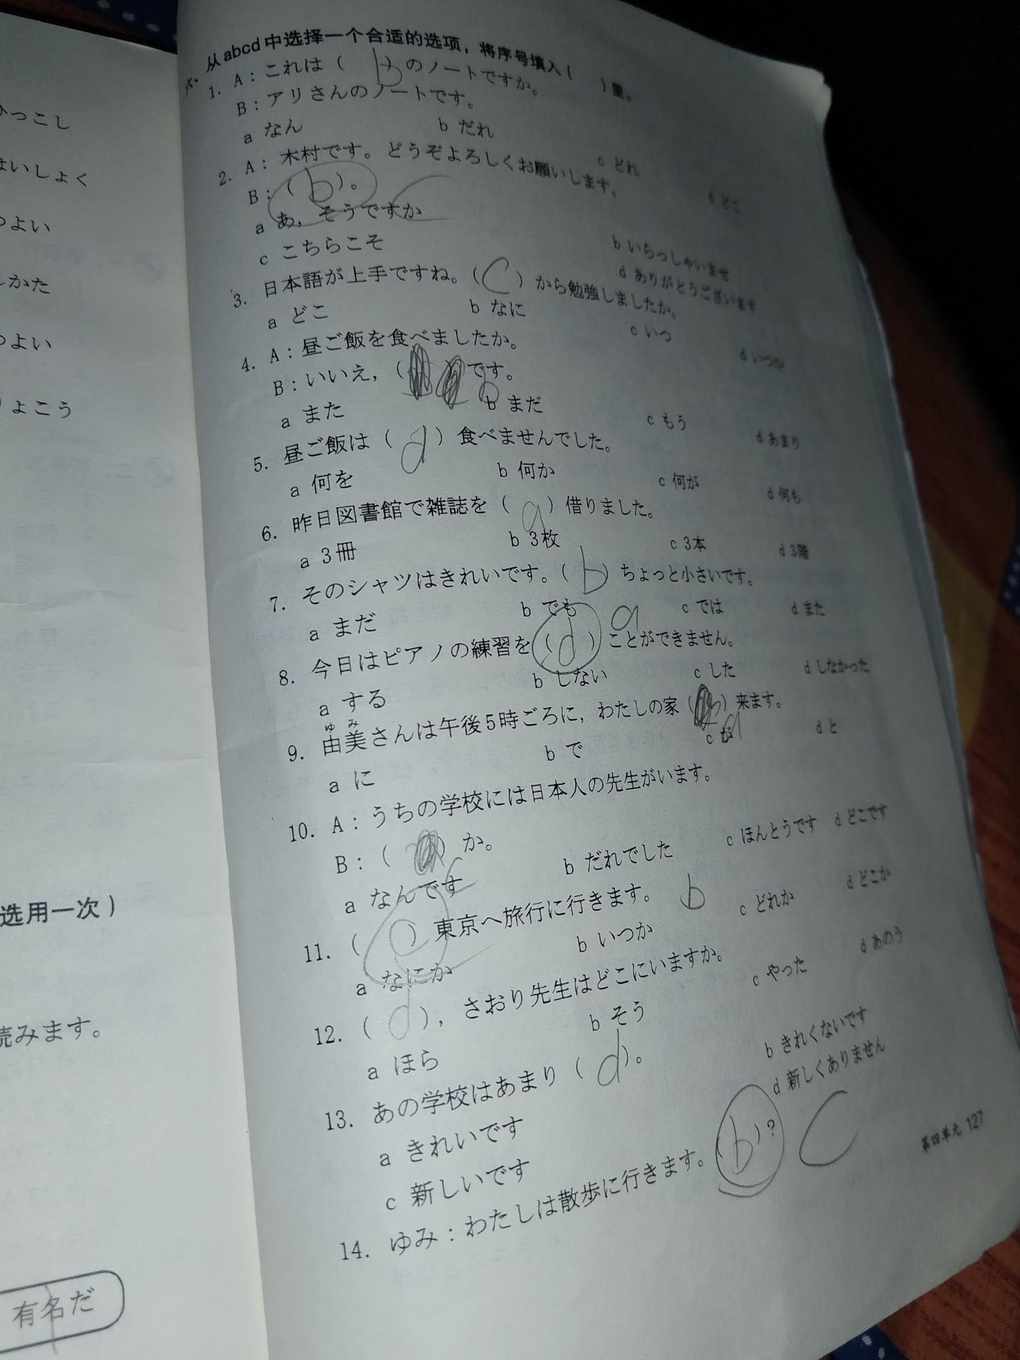 从abcd中选择一个合适的选项，将序号填入（　）里。
1. A：これは（ b ）のノートですか。
B：アリさんのノートです。
a なん　b だれ　c どれ　d どこ
2. A：木村です。どうぞよろしくお願いします。
B：（ b ）。 c
a あ，そうですか　b いらっしゃいませ
c こちらこそ　d ありがとうございます
3. 日本語が上手ですね。（ C ）から勉強しましたか。
a どこ　b なに　c いつ　d いつか
4. A：昼ご飯を食べましたか。
B：いいえ，（　）です。 b
a また　b まだ　c もう　d あまり
5. 昼ご飯は（ d ）食べませんでした。
a 何を　b 何か　c 何が　d 何も
6. 昨日図書館で雑誌を（ a ）借りました。
a 3冊　b 3枚　c 3本　d 3階
7. そのシャツはきれいです。（ b ）ちょっと小さいです。
a まだ　b でも　c では　d また
8. 今日はピアノの練習を（ d ）ことができません。 a
a する　b しない　c した　d しなかった
9. 由美さんは午後5時ごろに，わたしの家（　）来ます。 a
ゆみ
a に　b で　c が　d と
10. A：うちの学校には日本人の先生がいます。
B：（　）か。
a なんです　b だれでした　c ほんとうです　d どこです
11. （　）東京へ旅行に行きます。 b
a なにか　b いつか　c どれか　d どこか
12. （ d ），さおり先生はどこにいますか。
a ほら　b そう　c やった　d あのう
13. あの学校はあまり（ d ）。
a きれいです　b きれくないです
c 新しいです　d 新しくありません
14. ゆみ：わたしは散歩に行きます。（ b ）? C
第四单元 127
ひっこし
はいしょく
つよい
しかた
つよい
りょこう
选用一次）
読みます。
有名だ